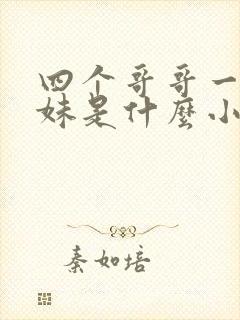 四个哥哥一
妹是什麼小
秦如培